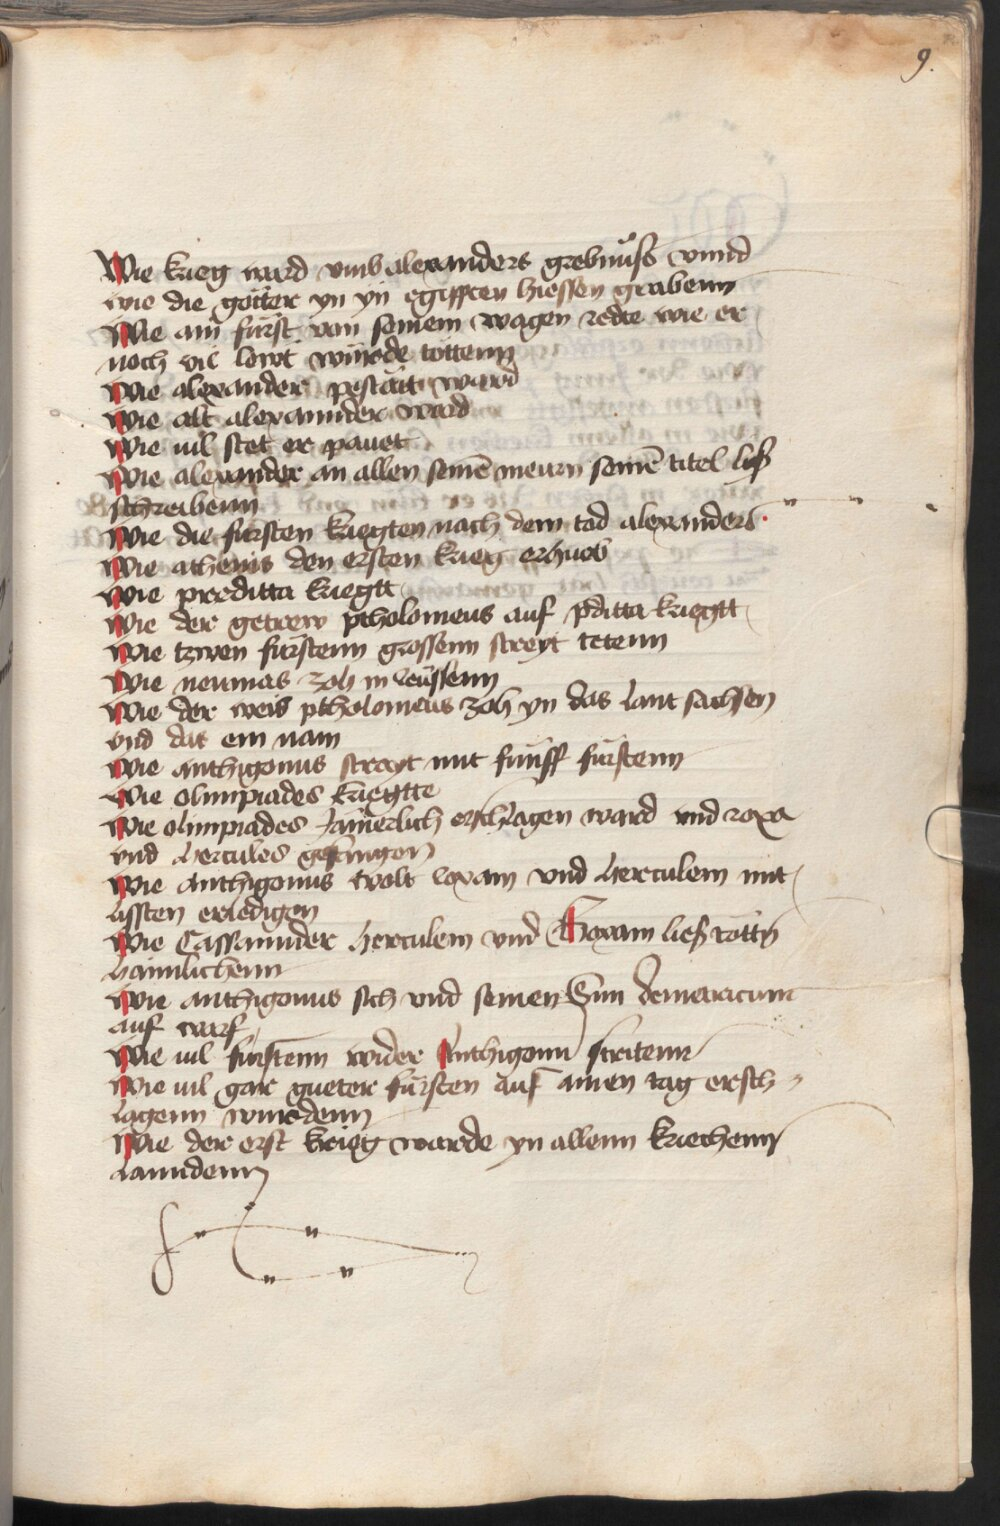 9.
Wie krieg ward vmb alexanders grebnuͦss vnnd
wie die götter yn yn egippten hiessen grabenn
Wie ain fürst von seinem wagen redte wie er
noch vil lewt würde töttenn
Wie alexander pestätt ward
Wie alt alexannder ward
Wie uil stet er pauet
Wie alexander an allen seinē meurn seinē titel ließ
schreibenn
Wie die fürsten kriegten nach dem tod alexanders.
Wie athenis den ersten krieg erhuob
Wie preditta kriegtt
Wie der getrew ptholomeus auf pditta kriegtt
Wie tzwen fürstenn grossenn streyt tetenn
Wie neumas zoh in reüssenn
Wie der weis ptholomeus zoh yn das lant sachsen
vnd das ein nam
Wie anthigonus streyt mit fünff fürstenn
Wie olimpiades kriegtte
Wie olimpiades Jämerlich erschlagen ward vnd roxa
vnd hercules gefangen
Wie anthigonus wolt roxam vnd herculem mit
lissten erledigen
Wie Cassannder herculem vnd Roxam ließ tötty
haimlichenn
Wie anthigonus sich vnd seinen Sun demetricum
auf warf
Wie uil fürstenn wider Anthigonu stritenn
Wie uil gar gueter fürsten auf ainen tag ersch
lagenn wurdenn
Wie der erst krieg warde yn allenn kriechenn
lanndenn